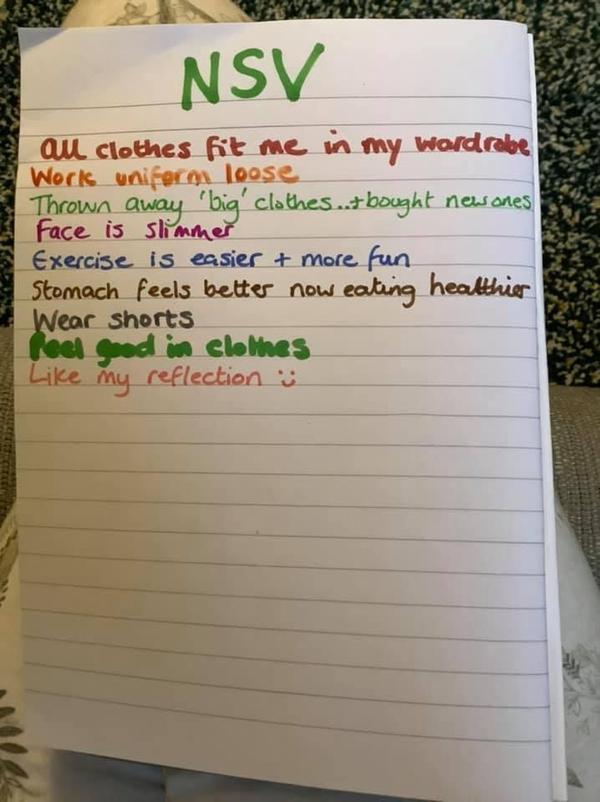 NSV
All clothes fit me in my wardrobe
Work uniform loose
Thrown away 'big' clothes..+bought new ones
Face is slimmer
Exercise is easier + more fun
Stomach feels better now eating healthier
Wear shorts
Feel good in clothes
Like my reflection :)